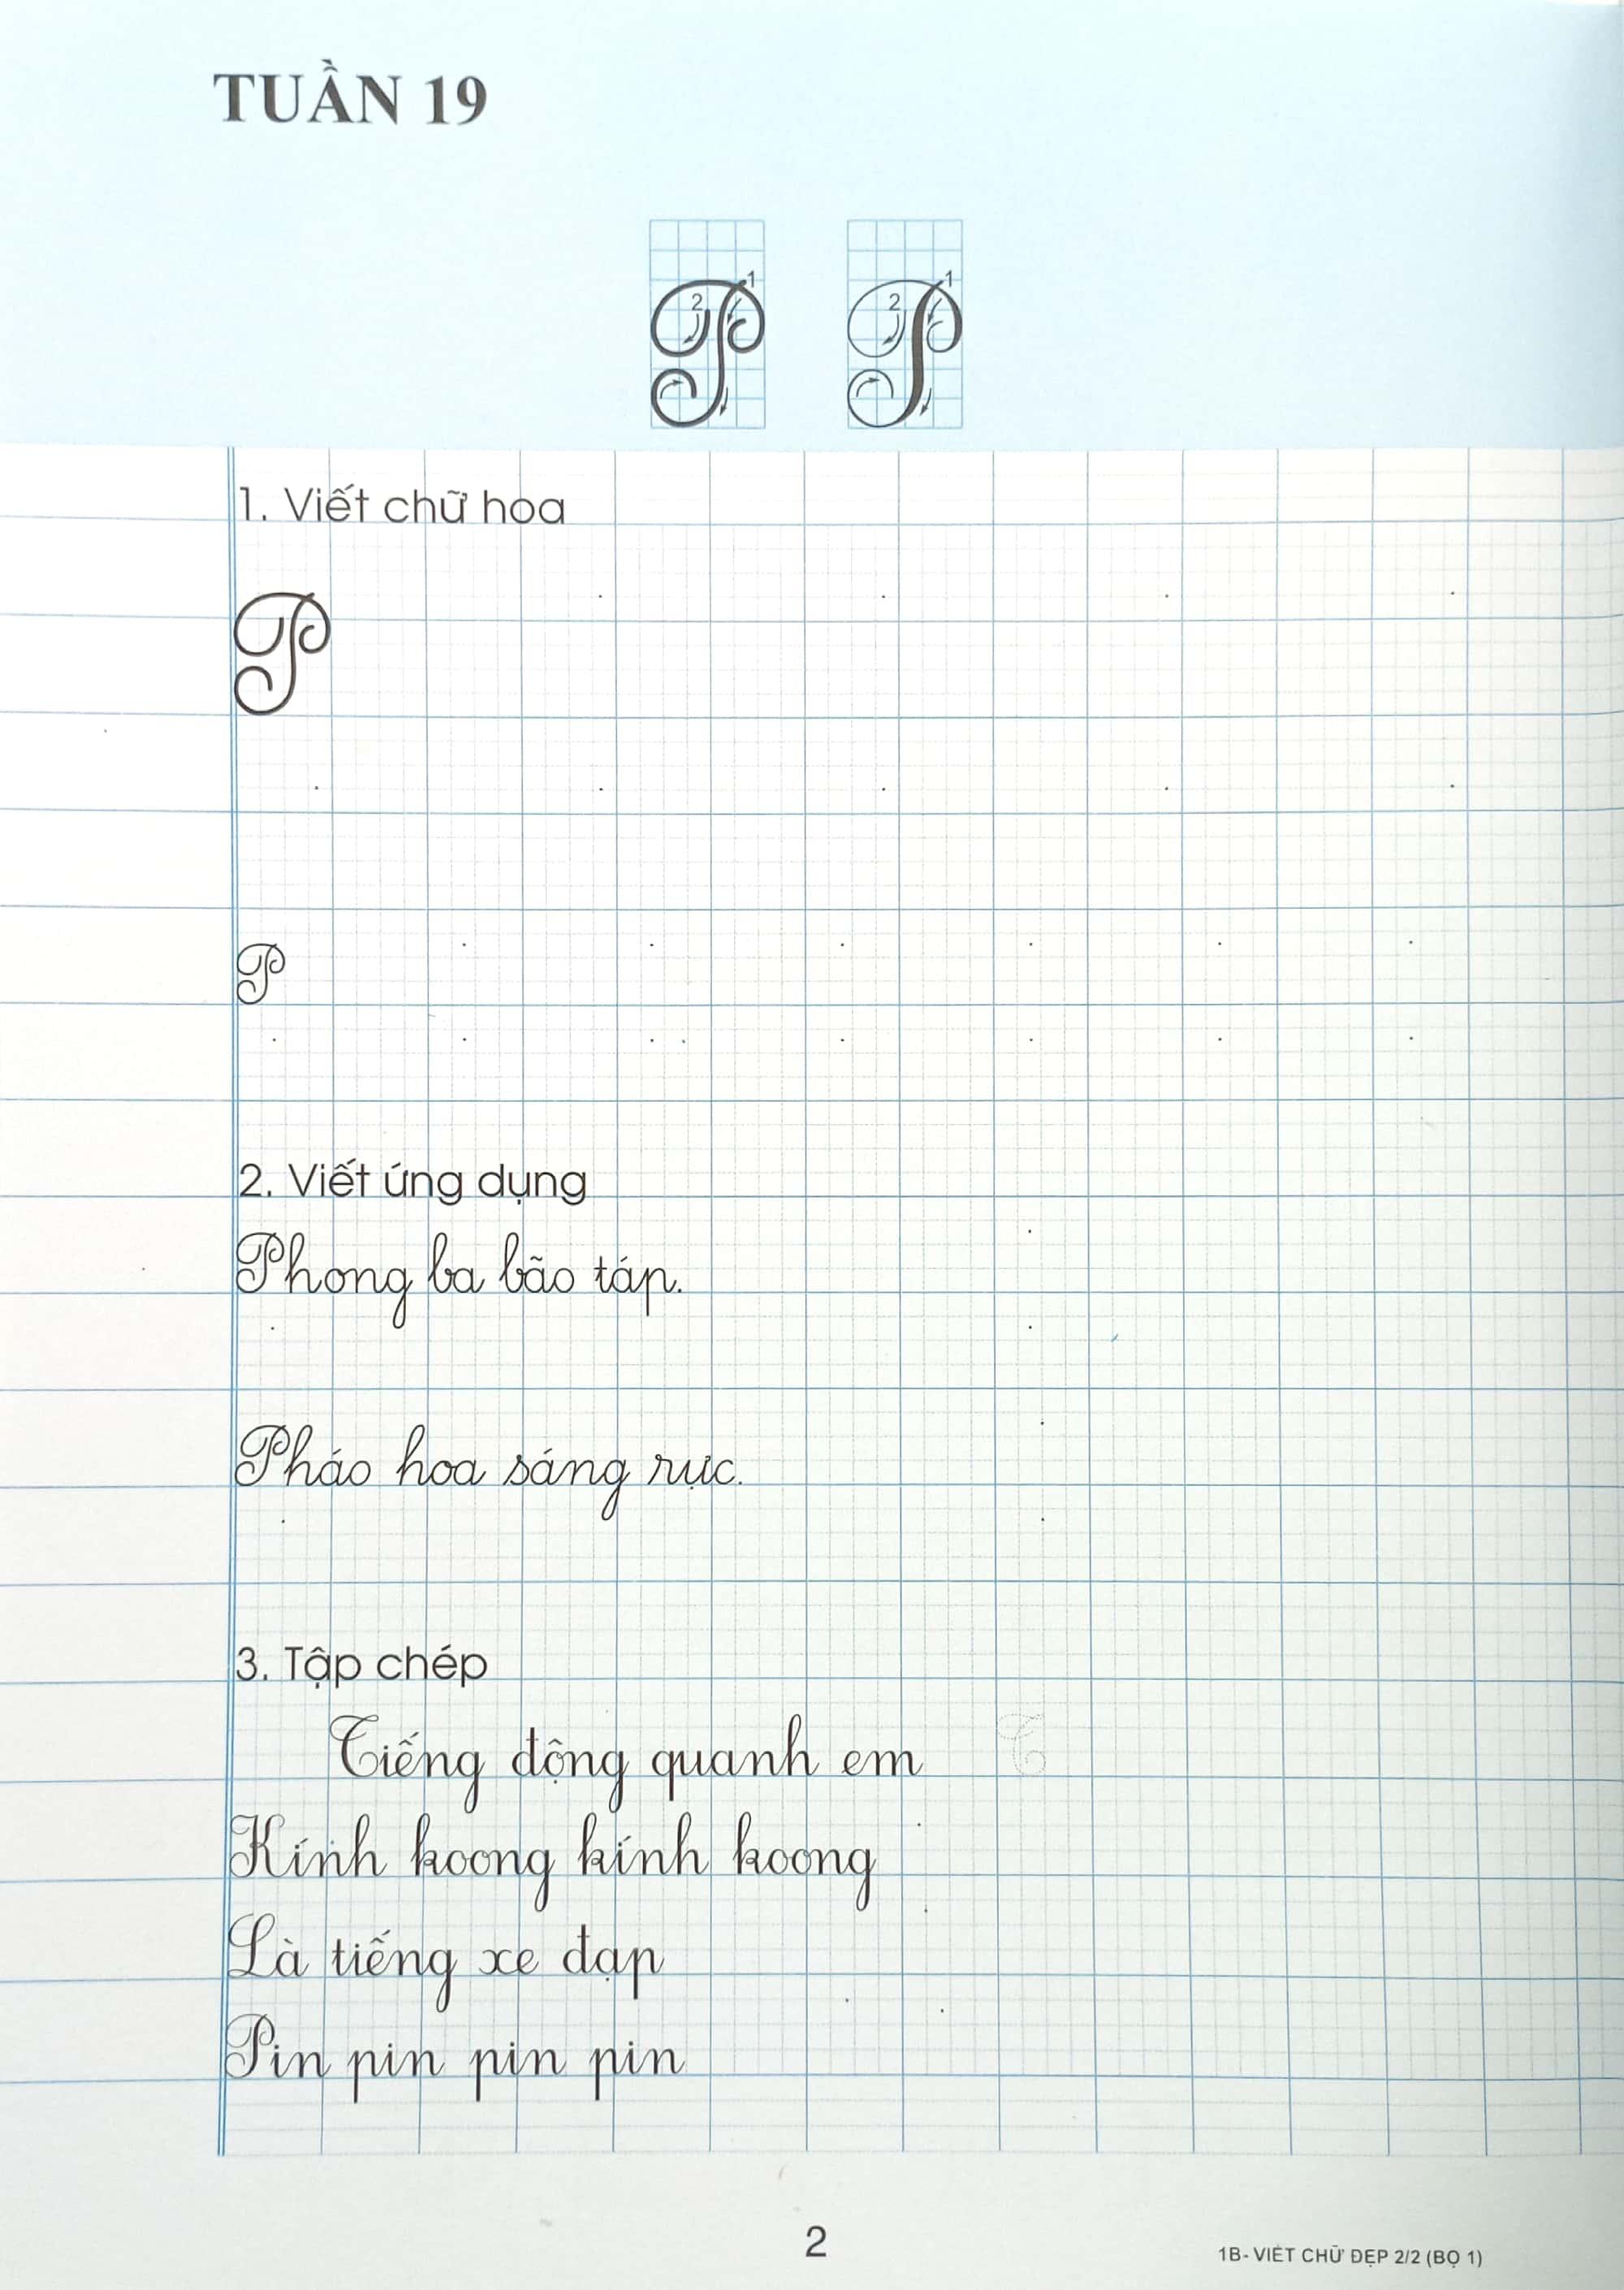 TUẦN 19
1 1
2 2
1. Viết chữ hoa
P
P
2. Viết ứng dụng
Phong ba bão táp.
Pháo hoa sáng rực.
3. Tập chép
Tiếng động quanh em T
Kính koong kính koong
Là tiếng xe đạp
Pin pin pin pin
2
1B- VIẾT CHỮ ĐẸP 2/2 (BỌ 1)